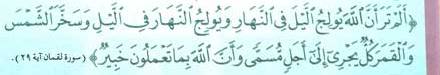 ﴿أَلَمْ تَرَ أَنَّ ٱللَّهَ يُولِجُ ٱلَّيْلَ فِى ٱلنَّهَارِ وَيُولِجُ ٱلنَّهَارَ فِى ٱلَّيْلِ وَسَخَّرَ ٱلشَّمْسَ
وَٱلْقَمَرَ كُلٌّ يَجْرِىٓ إِلَىٰٓ أَجَلٍ مُّسَمًّى وَأَنَّ ٱللَّهَ بِمَا تَعْمَلُونَ خَبِيرٌ﴾ (سورة لقمان آية ٢٩).